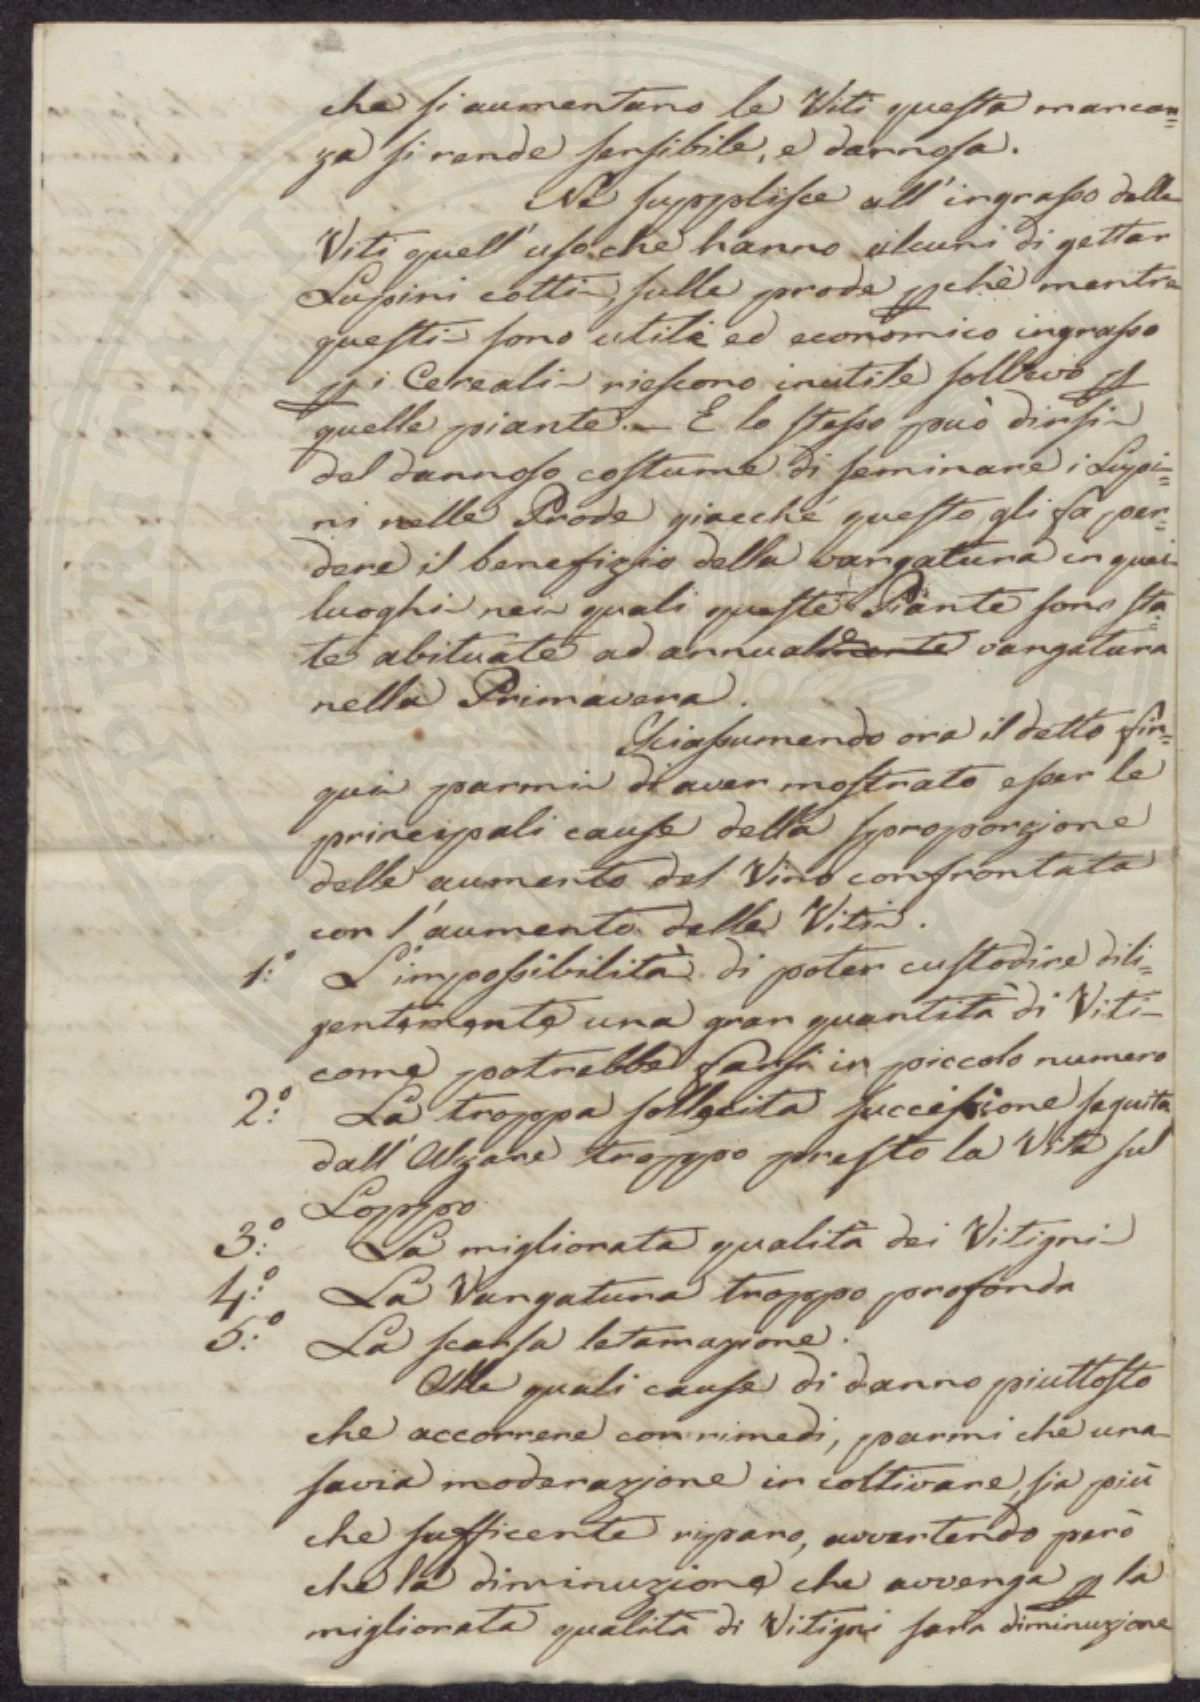 che si aumentano le Viti questa mancan=
za si rende sensibile, e dannosa.
Nè supplisce all'ingrasso delle
Viti quell'uso che hanno alcuni di gettar
Lupini cotti sulle prode pchè mentre
questi sono utile ed economico ingrasso
p i Cereali riescono inutile sollievo p
quelle piante. — E lo stesso può dirsi
del dannoso costume di seminare i Lupi=
ni nelle Prode giacchè questo gli fa per=
dere il benefizio della vangatura in quei
luoghi nei quali queste Piante sono sta=
te abituate ad annuale vangatura
nella Primavera.
Riassumendo ora il detto fin=
qui parmi di aver mostrato esser le
principali cause della sproporzione
delle aumento del Vino confrontata
con l'aumento delle Viti.
1.° L'impossibilità di poter custodire dili=
gentemente una gran quantità di Viti
come potrebbe farsi in piccolo numero
2.° La troppa sollecita successione seguita
dall'Alzare troppo presto la Vite sul
Loppo
3.° La migliorata qualità dei Vitigni
4.° La Vangatura troppo profonda
5.° La scarsa letamazione.
Alle quali cause di danno piuttosto
che accorrere con rimedi, parmi che una
savia moderazione in coltivare, sia più
che sufficente riparo, avvertendo però
che la diminuzione che avvenga p la
migliorata qualità di Vitigni sarà diminuzione